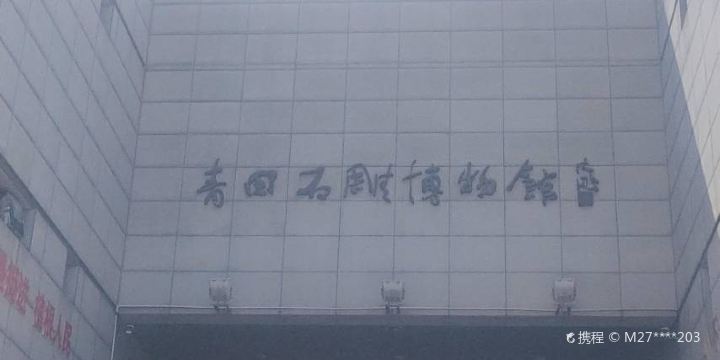 青田石雕博物馆
人民
携程 © M27****203